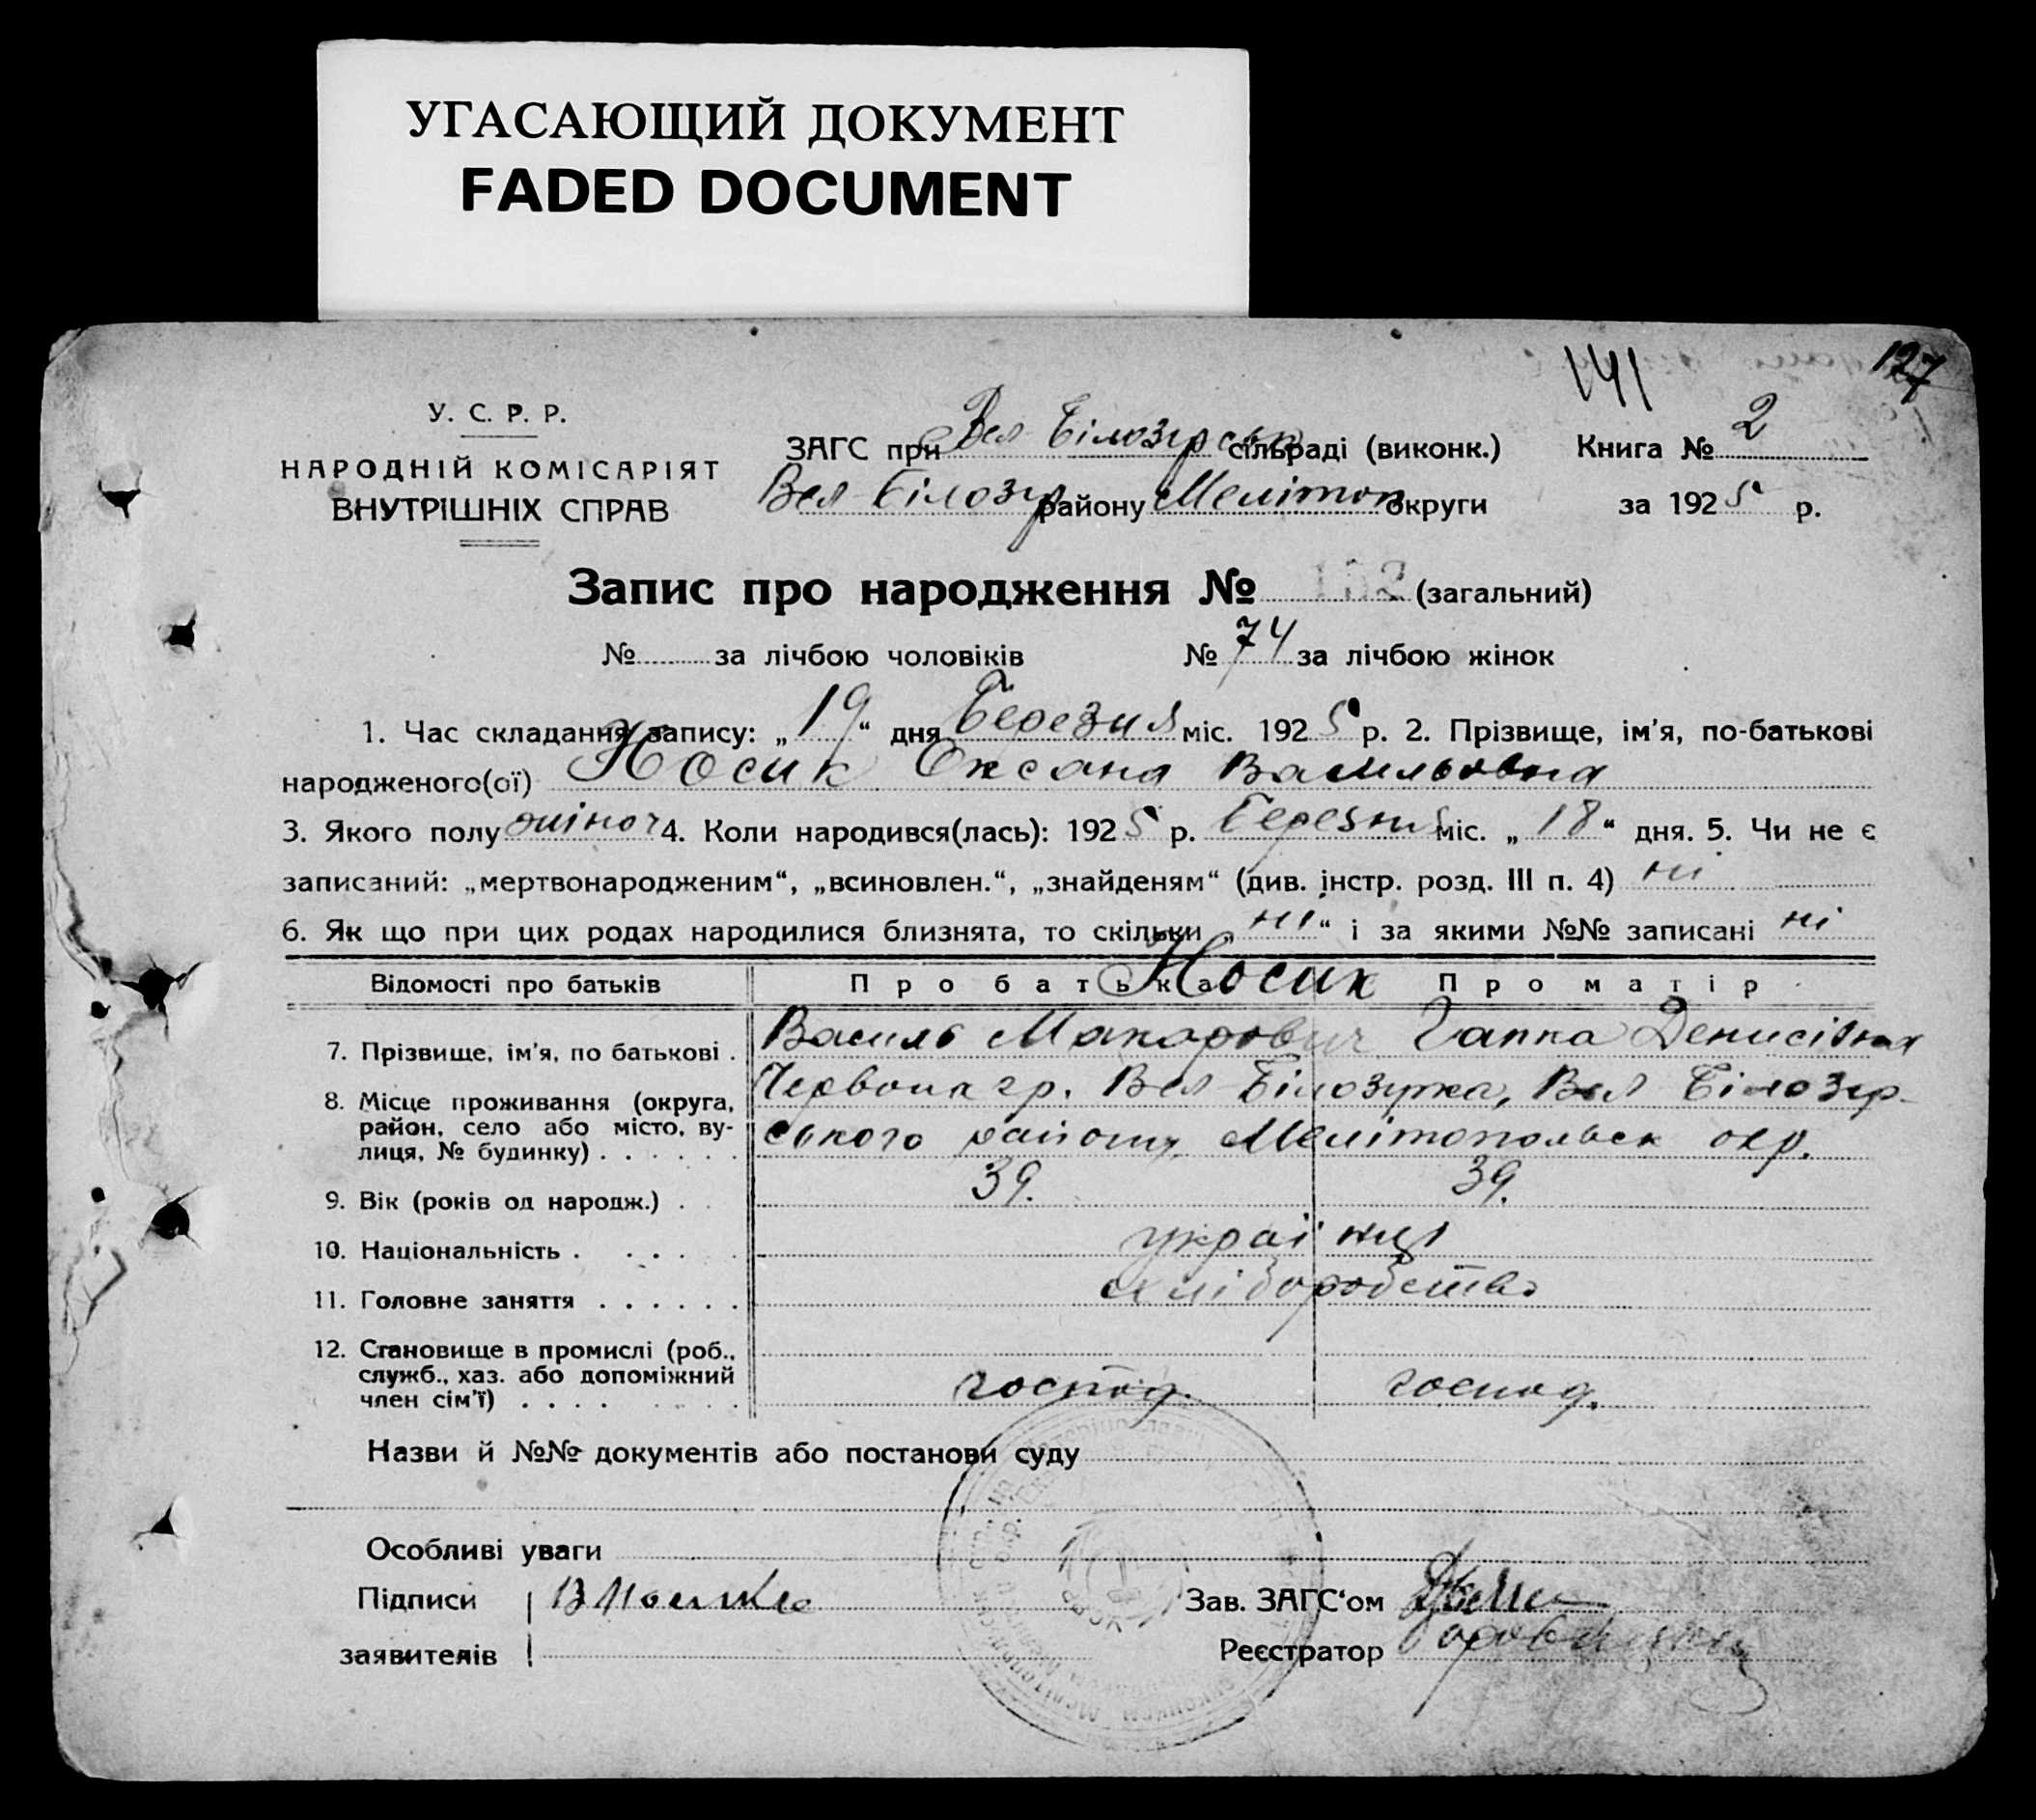 УГАСАЮЩИЙ ДОКУМЕНТ
FADED DOCUMENT
141 127
У. С. Р. Р.
НАРОДНІЙ КОМІСАРІЯТ
ВНУТРІШНІХ СПРАВ
ЗАГС при Вел Білозірськ сільраді (виконк.) Книга № 2
Вел Білозір району Мелітоп округи за 1925 р.
Запис про народження № 132 (загальний)
№ за лічбою чоловіків № 74 за лічбою жінок
1. Час складання запису: „19“ дня Березня міс. 1925 р. 2. Прізвище, ім'я, по-батькові
народженого(ої) Носик Оксана Васильовна
3. Якого полу жіноч 4. Коли народився(лась): 1925 р. Березня міс. „18“ дня. 5. Чи не є
записаний: „мертвонародженим“, „всиновлен.“, „знайденям“ (див. інстр. розд. III п. 4) ні
6. Як що при цих родах народилися близнята, то скільки „ні“ і за якими №№ записані ні
Відомості про батьків Про батька Носик Про матір
7. Прізвище, ім'я, по батькові . Василь Макарович Гапка Денисівна
8. Місце проживання (округа, район, село або місто, ву-
лиця, № будинку) . . . . . . Червона гр. Вел Білозірка, Вел Білозір-
ського району Мелітопольск окр.
9. Вік (років од народж.) . . 39. 39.
10. Національність . . . . . українці
11. Головне заняття . . . . . . хліборобство
12. Становище в промислі (роб.,
служб., хаз. або допоміжний
член сім'ї) . . . . господ. господ.
Назви й №№ документів або постанови суду
Особливі уваги
Підписи В Носик Зав. ЗАГС'ом
заявителів Реєстратор